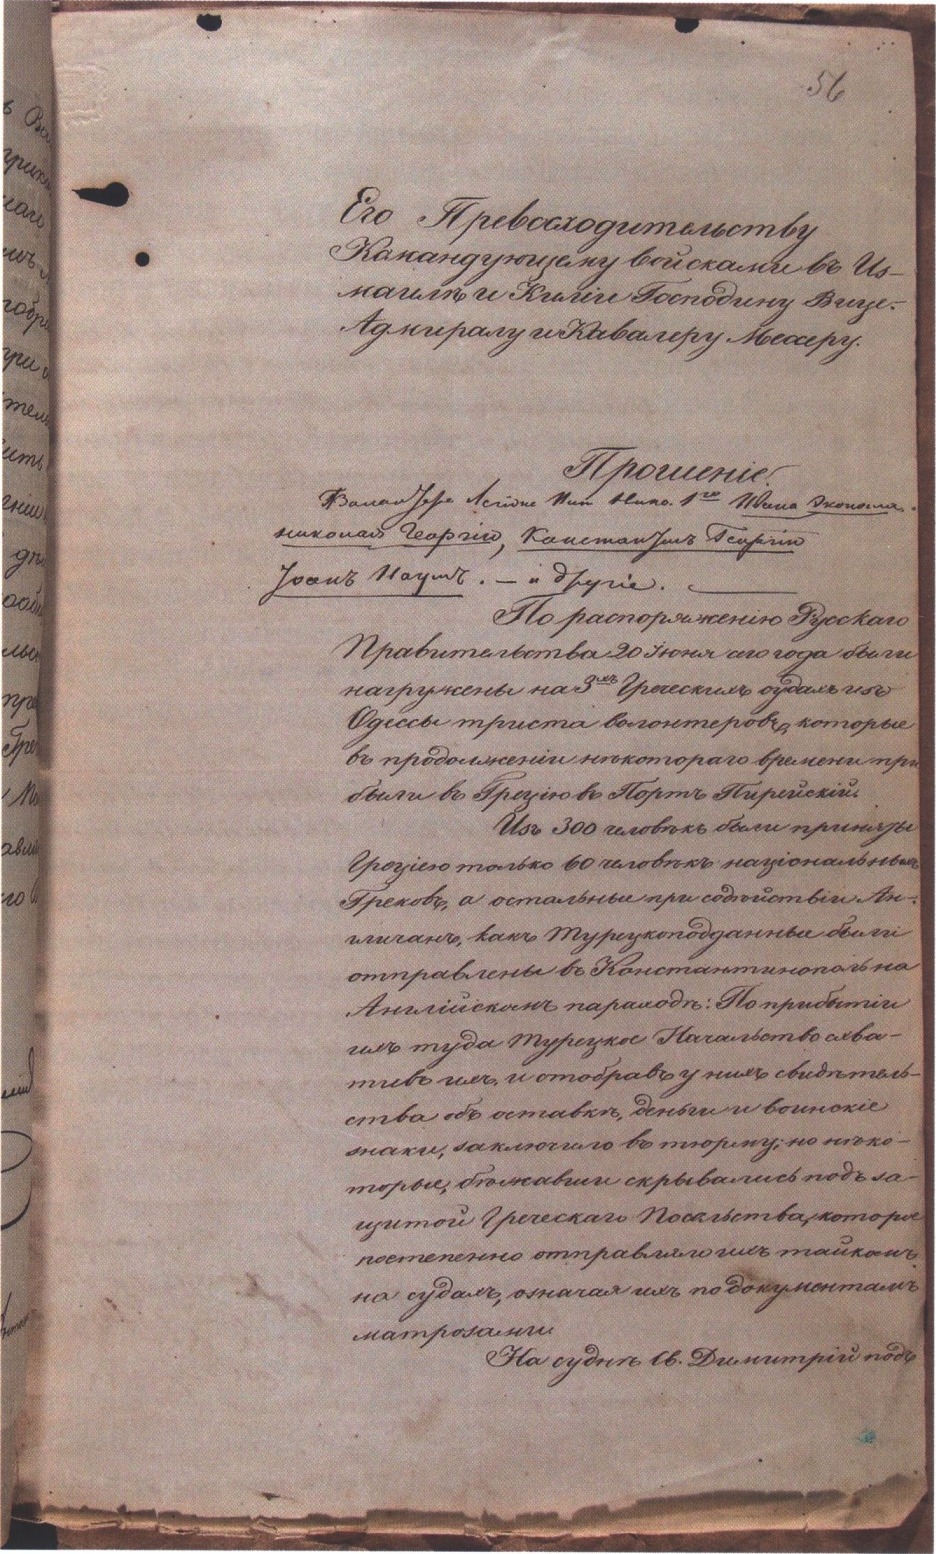 56
Его Превосходительству
Командующему войсками въ Из-
маилѣ и Киліи Господину Вице-
Адмиралу и Кавалеру Мессеру.
Прошеніе.
Ивана Эконома.
николай Георгіи, Константинъ Георгіи
Іоанъ Наумъ. — и другіе.
По распоряженію Русскаго
Правительства 20 Іюня сего года были
нагружены на 3хъ Греческихъ судахъ изъ
Одессы триста волонтеровъ, которые
въ продолженіи нѣкотораго времени при
были въ Грецію въ Портъ Пирейскій.
Изъ 300 человѣкъ были приняты
Греціею только 60 человѣкъ національныхъ
Грековъ, а остальные при содѣйствіи Ан-
гличанъ, какъ Турецкоподданные были
отправлены въ Константинополь на
Англійскомъ пароходѣ: По прибытіи
ихъ туда Турецкое Начальство схва-
тивъ ихъ, и отобравъ у нихъ свидѣтель-
ства объ оставкѣ, деньги и воинскіе
знаки, заключило въ тюрму; но нѣко-
торые, бѣжавши скрывались подъ за-
щитой Греческаго Посольства, которое
постепенно отправляло ихъ тайкомъ
на судахъ, означая ихъ по документамъ
матрозами.
На суднѣ Св. Димитрій подъ